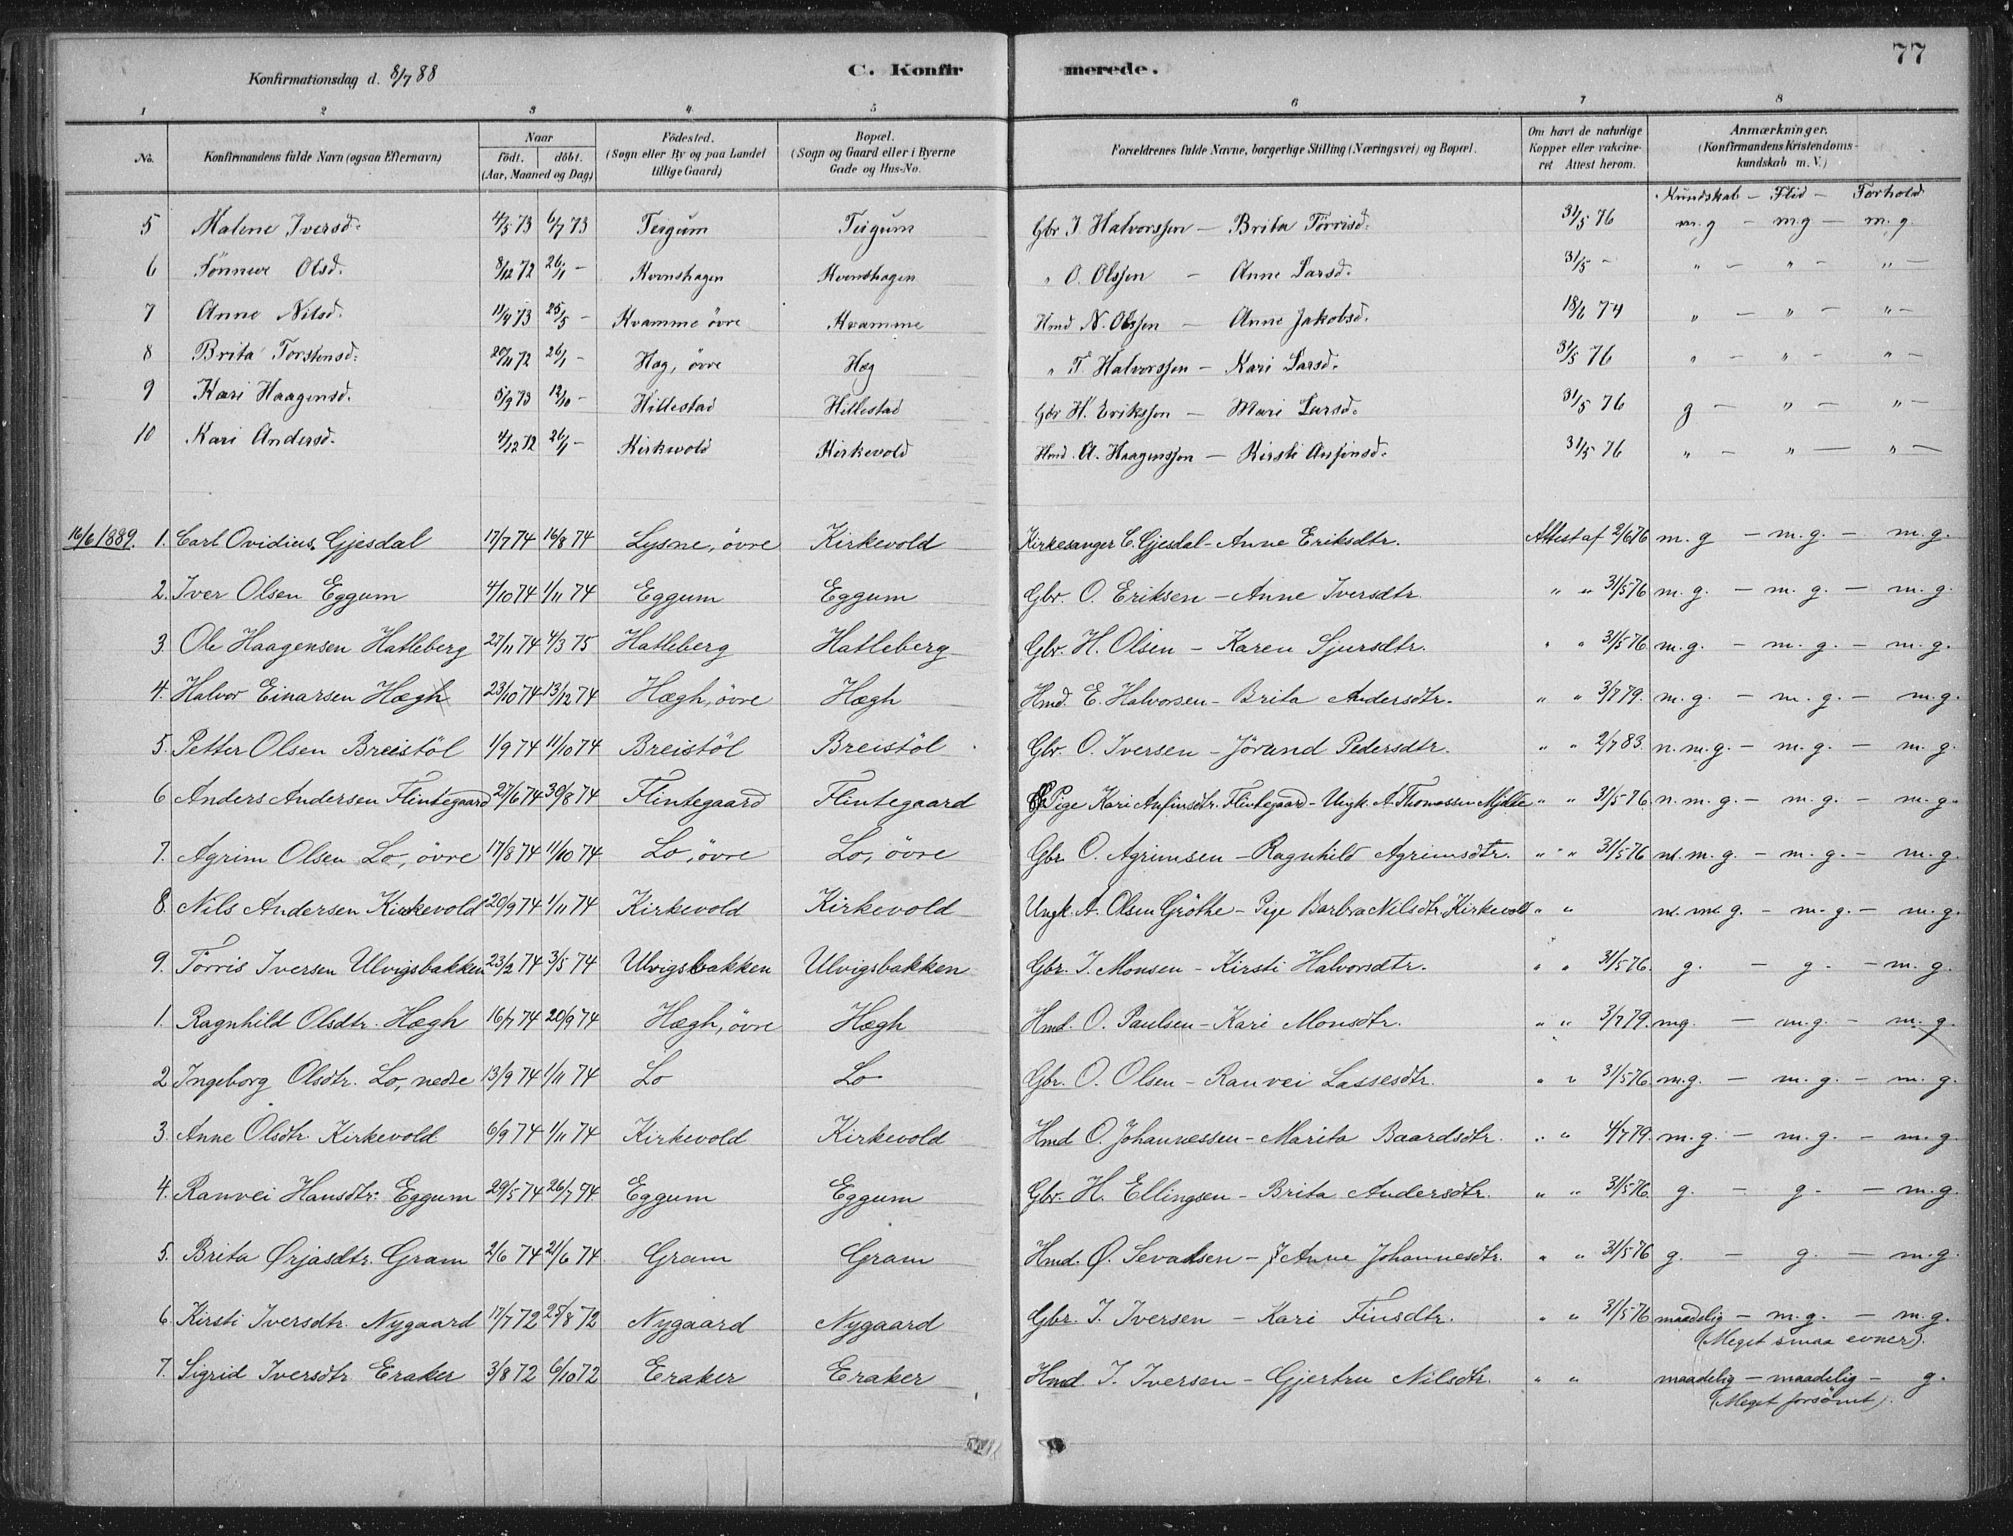 77
Konfirmationsdag d. 8/7 88
C. Konfirmerede.
1 2 3 4 5 6 7 8
No. Konfirmandens fulde Navn (ogsaa Efternavn) Naar födt. döbt. (Aar, Maaned og Dag) Födested. (Sogn eller By og paa Landet tillige Gaard) Bopæl. (Sogn og Gaard eller i Byerne Gade og Hus-No. Forældrenes fulde Navne, borgerlige Stilling (Næringsvei) og Bopæl. Om havt de naturlige Kopper eller vakcineret Attest herom. Anmærkninger. (Konfirmandens Kristendomskundskab m. V.)
Kundskab – Flid – Forhold
5 Malene Iversd. 4/5 73 6/7 73 Teigum Teigum Gbr I Halvorssen – Brita Törrisd. 31/5 76 m.g – m.g – m.g.
6 Sönneve Olsd. 8/12 72 26/1 – Kvenshagen Kvenshagen " O. Olssen – Anne Larsd. 31/5 – " – " – " –
7 Anne Nilsd. 11/4 73 25/5 – Kvamme övre Kvamme Hmd N. Olssen – Anne Jakobsd. 18/6 74 " – " – " –
8 Brita Torstensd. 20/11 72 26/1 – Hæg, övre Hæg " T Halvorssen – Kari Larsd. 31/5 76 " – " – " –
9 Kari Haagensd. 5/9 73 12/10 – Hillestad Hillestad Gbr H. Erikssen – Mari Larsd. 31/5 76 g – " – " –
10 Kari Andersd. 4/12 72 26/1 – Kirkevold Kirkevold Hmd. A. Haagenssen – Kirsti Anfinsd. 31/5 76 " – " – " –
16/6 1889. 1. Carl Ovidius Gjesdal 17/7 74 16/8 74 Lysne, övre Kirkevold Kirkesanger C. Gjesdal – Anne Eriksdtr. Attest af 2/6 76 m. g – m. g. – m. g.
2. Iver Olsen Eggum 4/10 74 1/11 74 Eggum Eggum Gbr. O. Eriksen – Anne Iversdtr. " " 31/5 76 m. g. – m. g. – m. g.
3. Ole Haagensen Hatleberg 27/11 74 4/3 75 Hatleberg Hatleberg Gbr. H. Olsen – Karen Sjursdtr. " " 31/5 76 m. g. – m. g. – m. g.
4. Halvor Einarsen Hægh 23/10 74 13/12 74 Hægh, övre Hægh Hmd. E. Halvorsen – Brita Andersdtr. " " 3/7 79. m. g. – m. g. – m. g.
5. Petter Olsen Breistöl 1/9 74 11/10 74 Breistöl Breistöl Gbr. O. Iversen – Jörand Pedersdtr. " " 2/7 83. n. m. g. – m. g. – m. g.
6 Anders Andersen Flintegaard 27/6 74 30/8 74 Flintegaard Flintegaard Pige Kari Anfinsdtr. Flintegaard – Ungk. A. Thomassen Mjelde " " 31/5 76. n. m. g. – m. g. – m. g.
7. Agrim Olsen Lo, övre 17/8 74 11/10 74 Lo, övre Lo, övre Gbr. O. Agrimsen – Ragnhild Agrimsdtr. " " 31/5 76 n. m. g. – m. g. – m. g.
8. Nils Andersen Kirkevold 20/9 74 1/11 74 Kirkevold Kirkevold Ungk. A. Olsen Gröthe – Pige Barbra Nilsdtr. Kirkevold " " n. m. g. – m. g. – m. g.
9. Törris Iversen Ulvigsbakken 23/2 74 3/5 74 Ulvigsbakken Ulvigsbakken Gbr. I. Monsen – Kirsti Halvorsdtr. " " 31/5 76. g. – g. – m. g.
1. Ragnhild Olsdtr. Hægh 16/7 74 20/9 74 Hægh, övre Hægh Hmd. O. Paulsen – Kari Monsdtr. " " 3/7 79. mg. – m. g. – m. g.
2 Ingeborg Olsdtr. Lo, nedre 13/9 74 1/11 74 Lo Lo Gbr. O. Olsen – Ranvei Lassesdtr. " " 31/5 76 m. g. – m. g. – m. g.
3. Anne Olsdtr. Kirkevold 6/9 74 1/11 74 Kirkevold Kirkevold Hmd O. Johannessen – Marita Baardsdtr. " " 4/7 79. m. g. – m. g. – m. g.
4. Ranvei Hansdtr. Eggum 29/5 74 26/7 74 Eggum Eggum Gbr. H. Ellingsen – Brita Andersdtr. " " 31/5 76. g. – g. – m. g.
5. Brita Ørjasdtr. Gram 2/6 74 21/6 74 Gram Gram Hmd. Ø. Sevatsen – Anne Johannesdtr. " " 31/5 76 g. – g. – m. g.
6. Kirsti Iversdtr. Nygaard 17/7 72 25/8 72 Nygaard Nygaard Gbr. I. Iversen – Kari Finsdtr. " " 31/5 76 maadelig – m. g. – m. g.
(Meget smaa evner).
7. Sigrid Iversdtr. Eraker 3/8 72 6/10 72 Eraker Eraker Hmd. I. Iversen – Gjertru Nilsdtr. " " maadelig – maadelig – g.
(Meget forsömt).